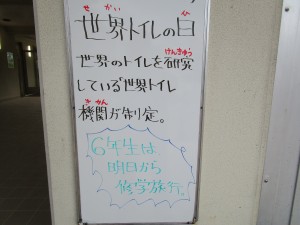 せかい
世界トイレの日
けんきゅう
世界のトイレを研究
している「世界トイレ
きかん
機関が制定。
6年生は、
明日から
修学旅行。